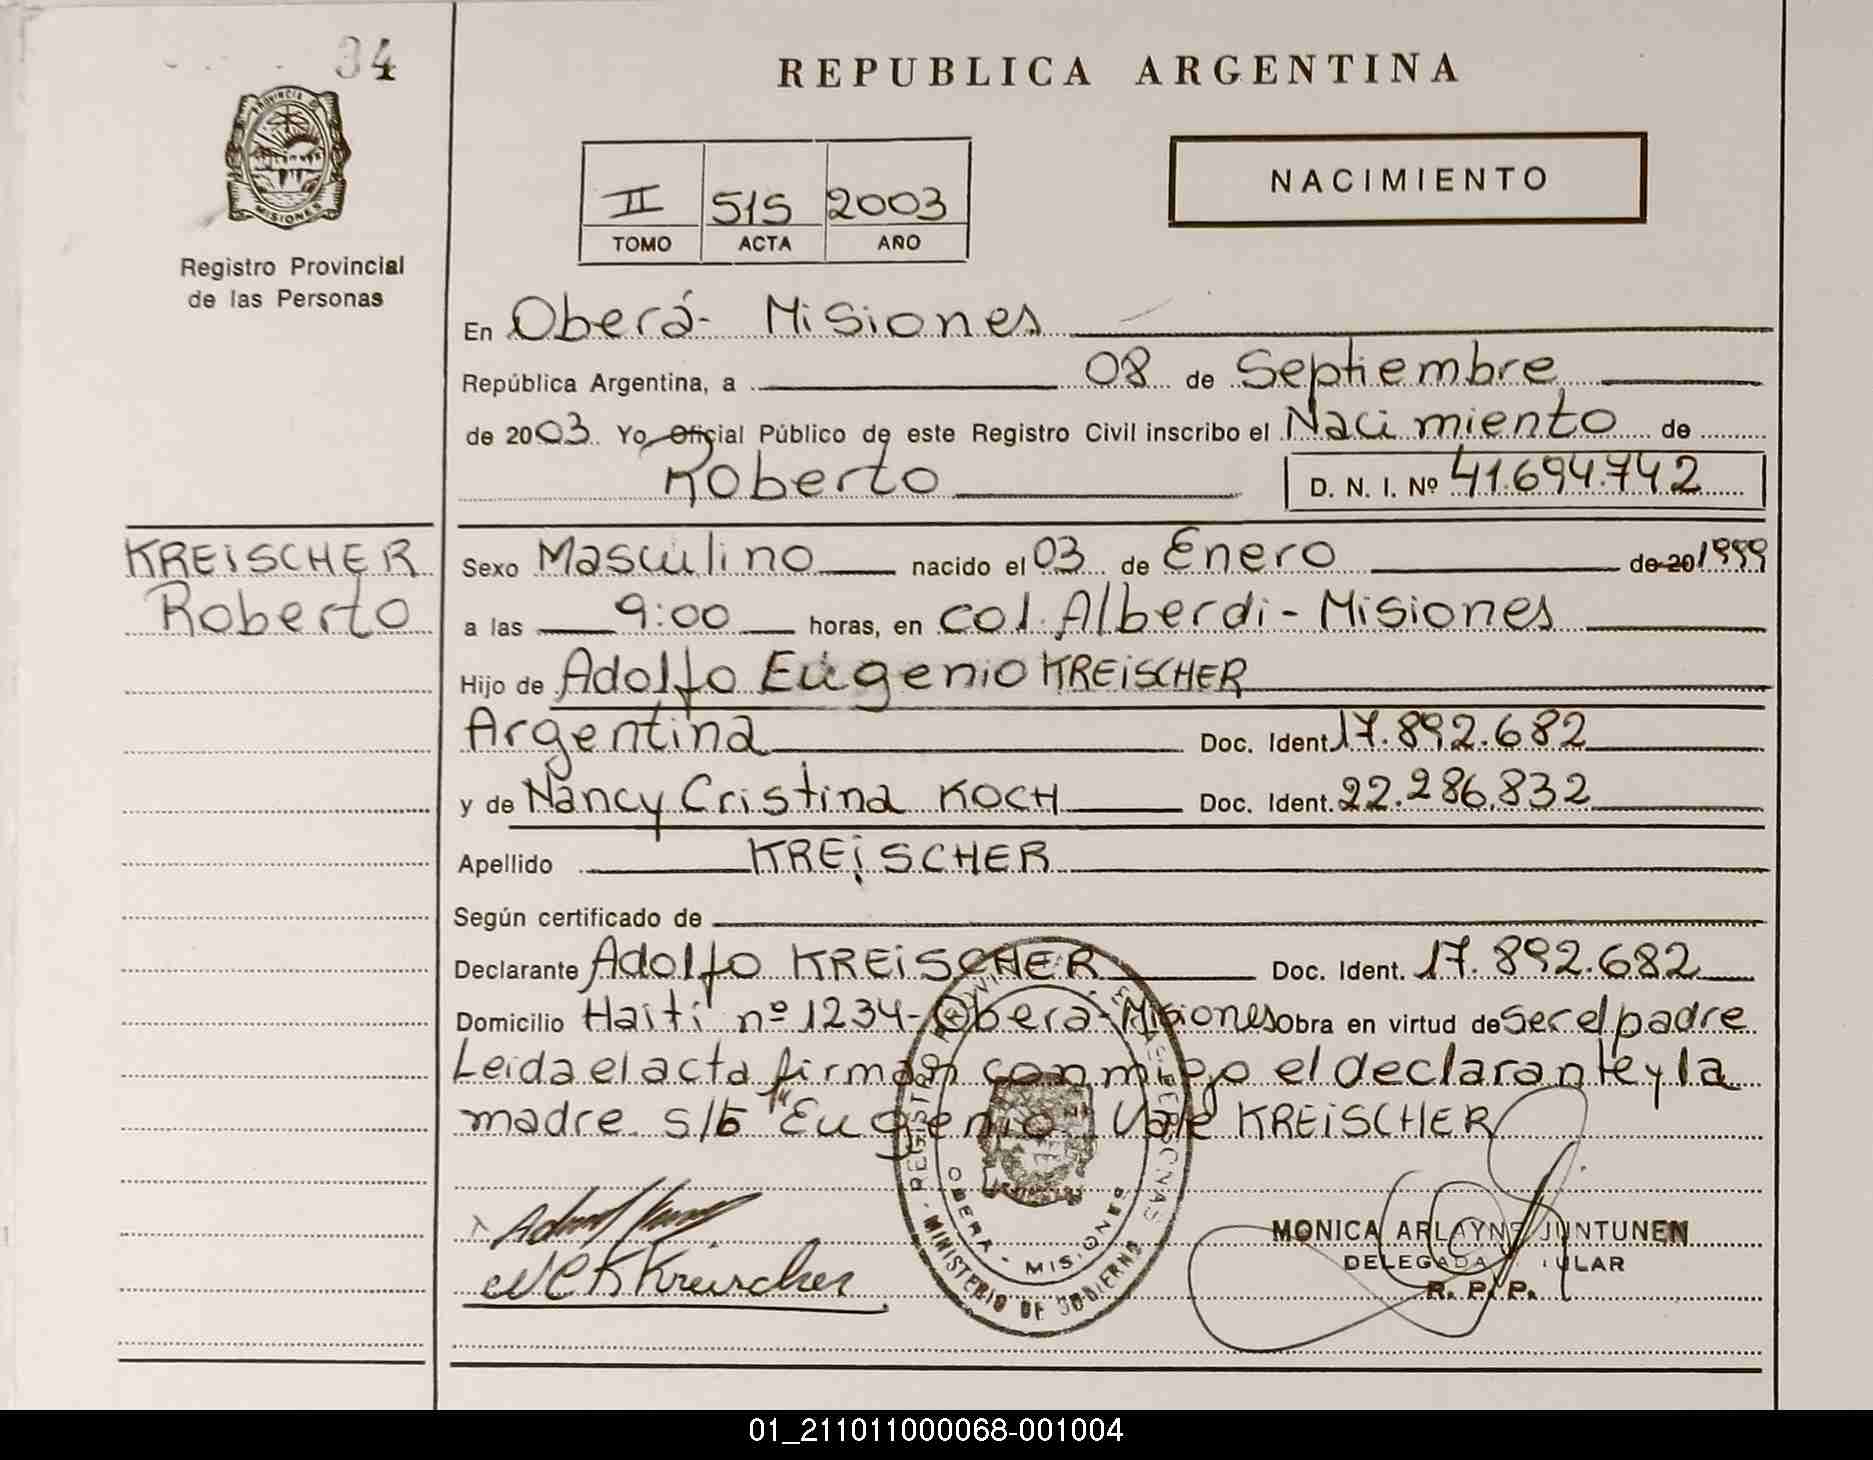 34
PROVINCIA D
MISIONES
Registro Provincial
de las Personas
REPUBLICA ARGENTINA
II 515 2003
TOMO ACTA AÑO
NACIMIENTO
En Oberá- Misiones
República Argentina, a 08 de Septiembre
de 2003. Yo Oficial Público de este Registro Civil inscribo el Nacimiento de
Roberto D. N. I. Nº 41.694.742
KREISCHER
Roberto
Sexo Masculino nacido el 03 de Enero de 20 1999
a las 9:00 horas, en Col. Alberdi - Misiones
Hijo de Adolfo Eugenio KREISCHER
Argentina Doc. Ident. 17.892.682
y de Nancy Cristina KOCH Doc. Ident. 22.286.832
Apellido KREISCHER
Según certificado de
Declarante Adolfo KREISCHER Doc. Ident. 17.892.682
Domicilio Haití nº 1234- Oberá- Misiones obra en virtud de ser el padre
Leida el acta firman conmigo el declarante y la
madre s/b "Eugenio" Vale KREISCHER
N C K Kreischer
MONICA ARLAYNE JUNTUNEN
DELEGADA TITULAR
R. P. P.
OBERA - MISIONES
MINISTERIO DE GOBIERNO
01_211011000068-001004